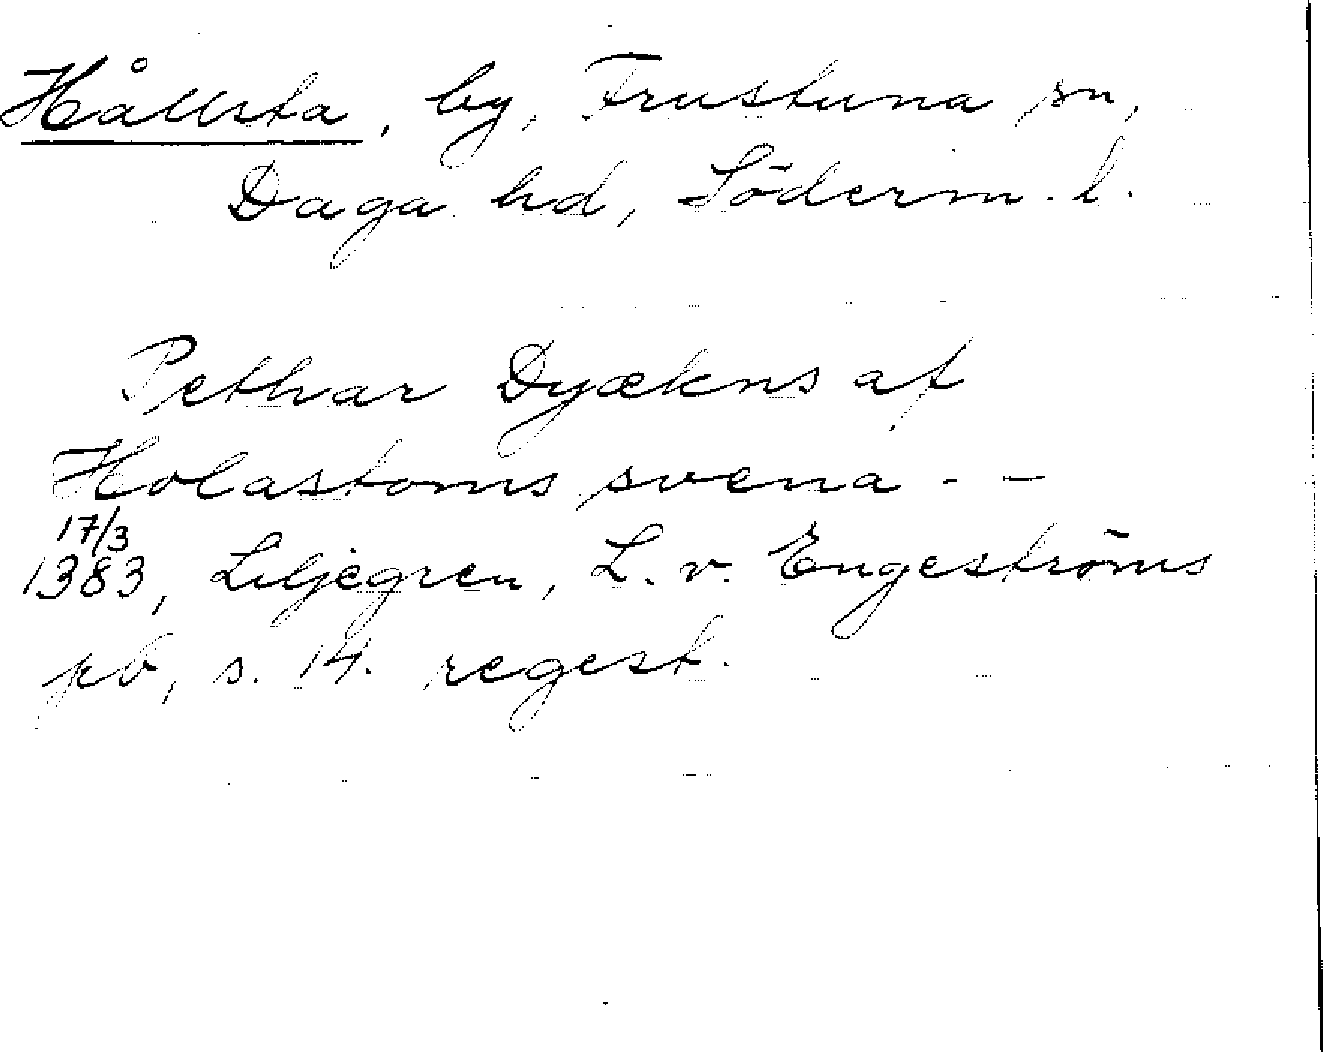 Hållsta, by, Frustuna sn,
Daga hd, Söderm. l.
Pethar Dyækns af
Holastoms svena - -
17/3
1383, Liljegren, L. v. Engeströms
pb, s. 14. regest.